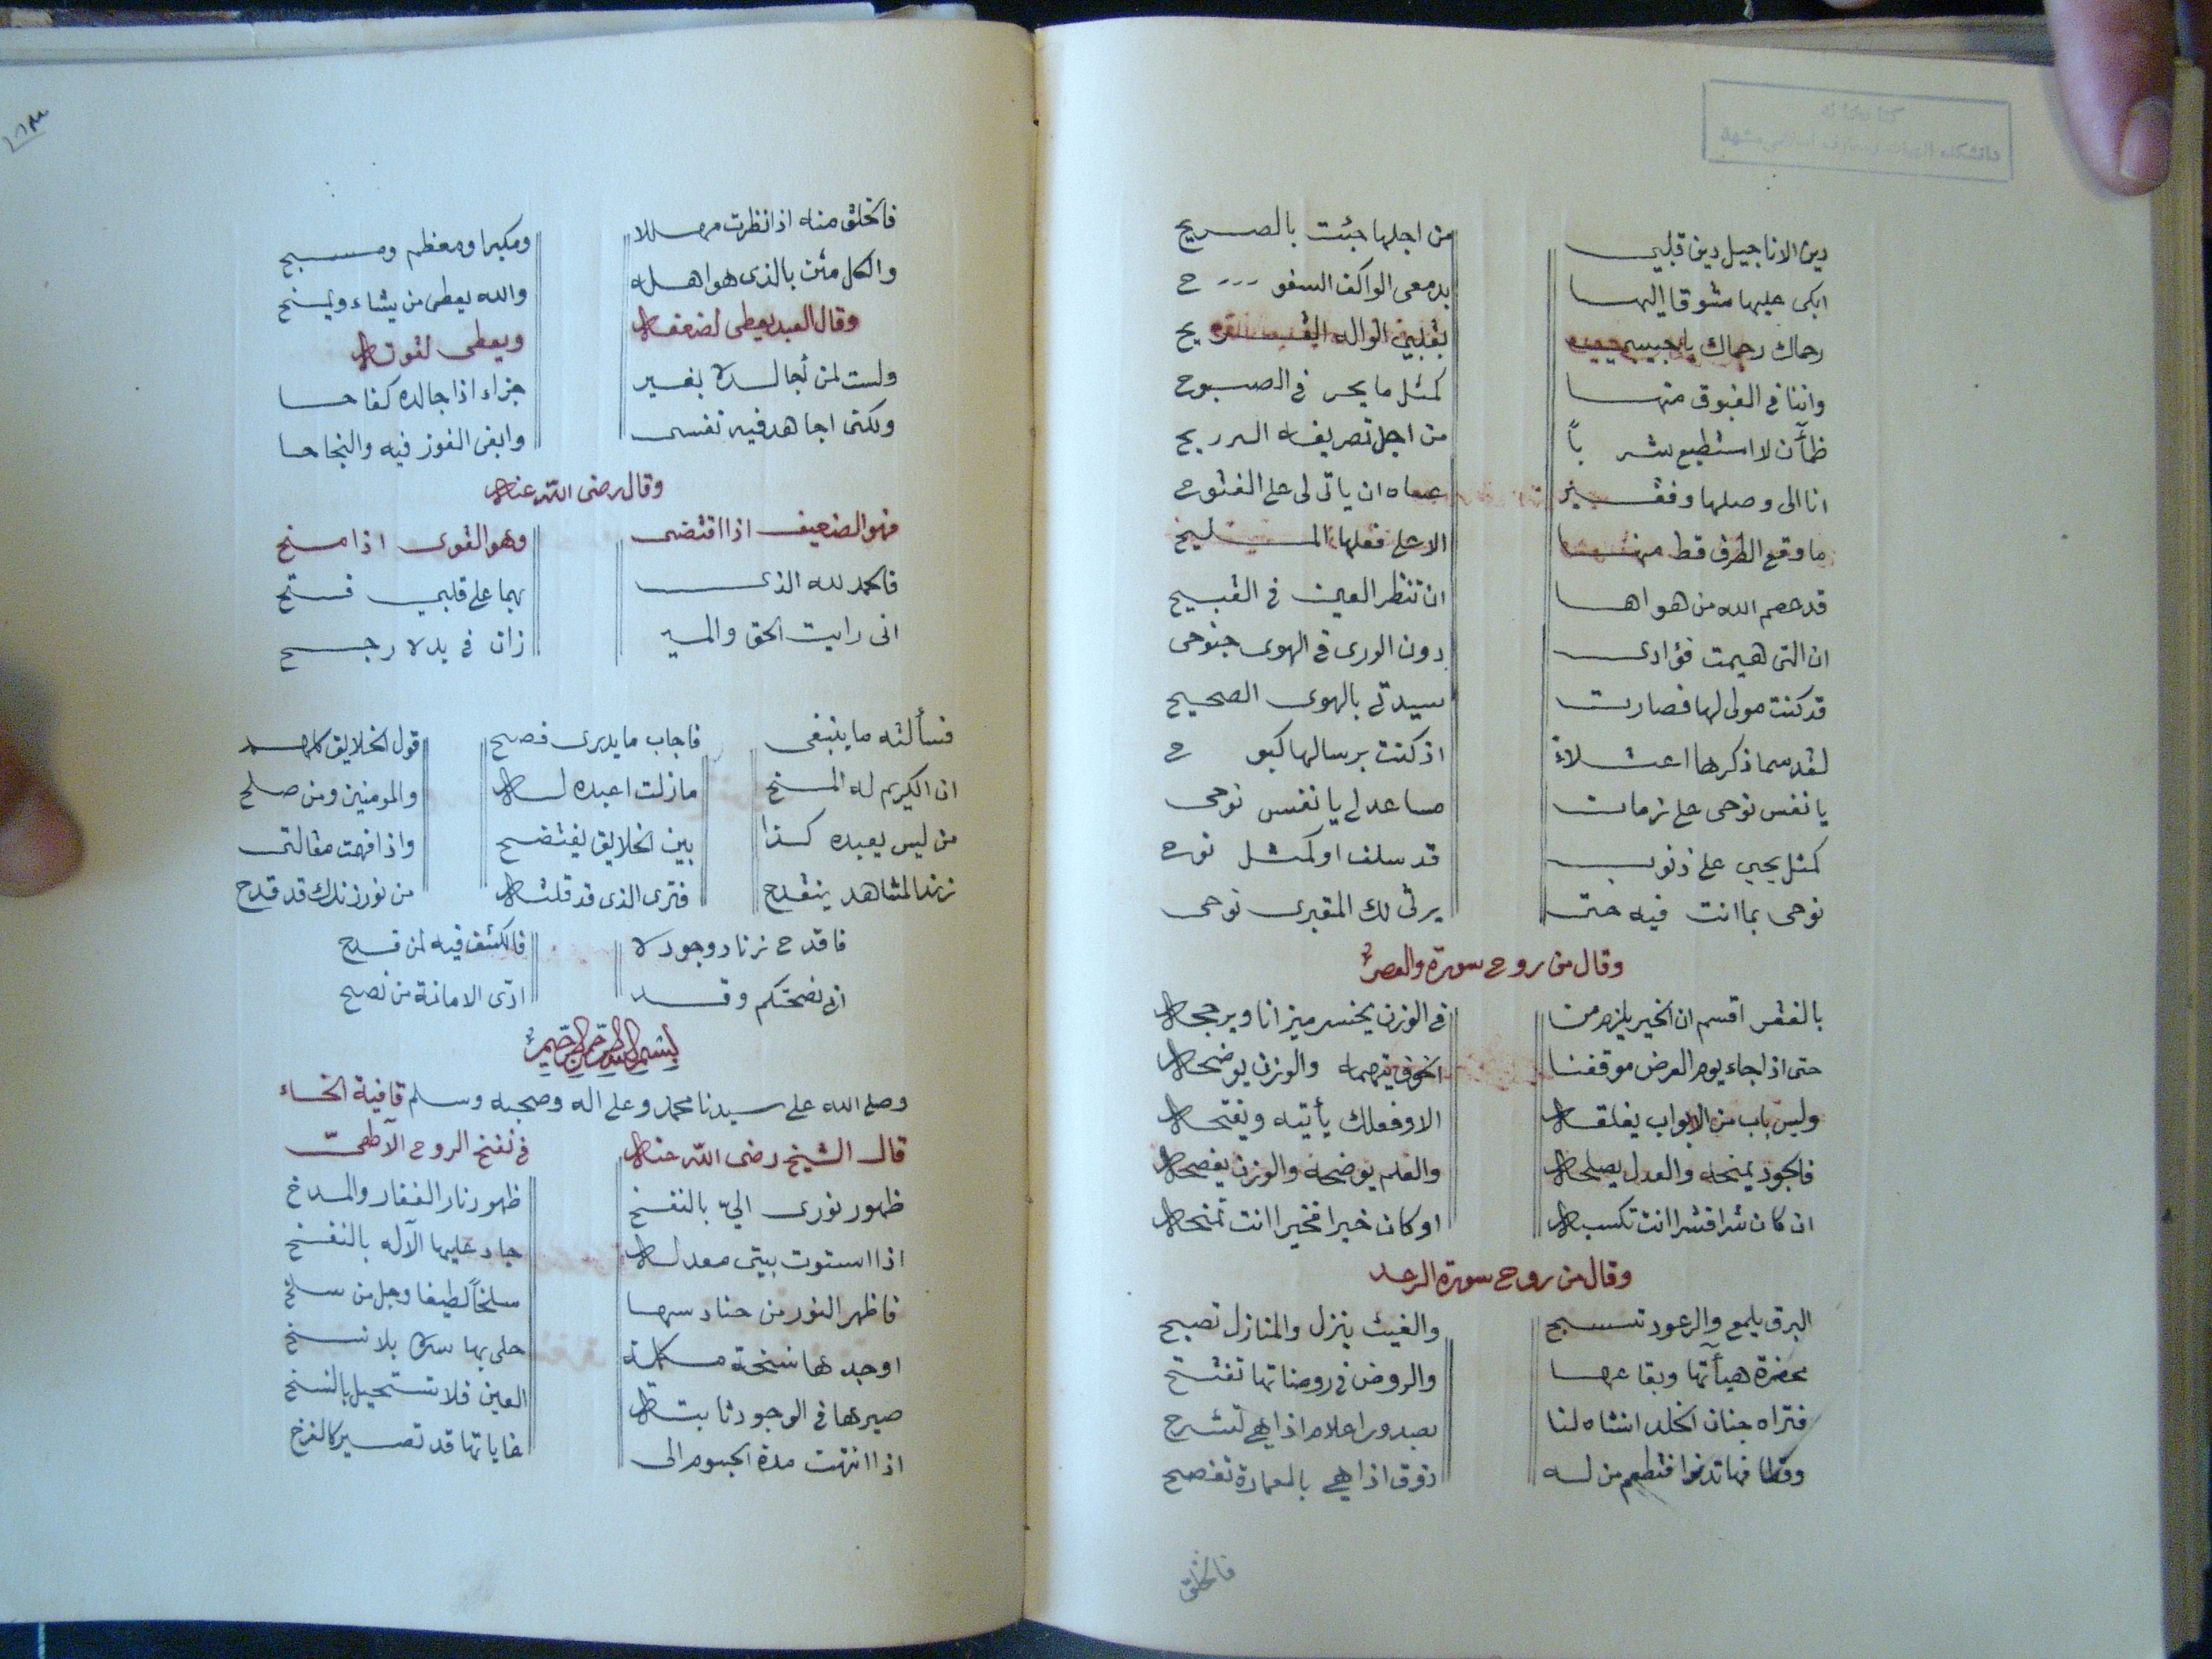 كتابخانه
دانشكده الهيات ومعارف اسلامى مشهد
دين الاناجيل دين قلبي من اجلها جئت بالصريح
ابكى عليها مشوقا اليها بدمعى الواكف السفوح
رحماك رحماك يا بقلبي الواله القريح
واننا في الغبوق منها كمثل ما يحر في الصبوح
ظمآن لا استطيع شربا من اجل تصريفه الرريح
انا الى وصلها وفقير عساه ان ياتى لى على الفتوح
ما وقع الطرف قط منها الا على فعلها المليح
قد عصم الله من هواها ان تنظر العين في القبيح
ان التى هيمت فؤادى دون الورى في الهوى جنوحى
قد كنت مولى لها فصارت سيدتى بالهوى الصحيح
لقد سما ذكرها اعتلاءً اذ كنت برسالها كبوح
يا نفس نوحى على زمان مساعد لى يا نفس نوحى
كمثل يحيي على ذنوب قد سلف او كمثل نوح
نوحى بما انت فيه حتى يرثى لك المقبرى نوحى
وقال من روح سورة والعصر
بالفقر اقسم ان الخير يلزم من في الوزن يخسر ميزانا ويرجحه
حتى اذا جاء يوم العرض موقفنا الخوف يبهمه والوزن يوضحه
وليس باب من الابواب يغلقه الا وفعلك يأتيه ويفتحه
فالجود يمنحه والعدل يصلحه والعلم يوضحه والوزن يفصحه
ان كان شرا فشرا انت تكسبه او كان خيرا فخيرا انت تمنحه
وقال من روح سورة الرعد
البرق يلمع والرعود تسبح والغيث ينزل والمنازل تصبح
مخضرة هيأتها وبقاعها والروض في روضاتها تفتح
فتراه جنان الخلد انشاه لنا بصدور اعلام اذا هي تشرح
وقطافها تدنوا فتطعم من له ذوق اذا هي بالعمارة تفصح
فالخلق
فالخلق منه اذا نظرت مهللا ومكبرا ومعظم ومسبح
والكل مثن بالذى هو اهله والله يعطى من يشاء ويمنح
وقال العبد يعطى لضعفه ويعطى لقوته
ولست لمن أجالده بغير جزاء اذا جالده كفاحا
ولكنى اجاهد فيه نفسى وابغى الفوز فيه والنجاحا
وقال رضى الله عنه
فهو الضعيف اذا اقتضى وهو القوى اذا منح
فالحمد لله الذى بها على قلبي فتح
انى رايت الحق والميـ ـزان في يده رجح
فسألته ما ينبغى فاجاب ما يدرى فصح قول الخلايق كلهم
ان الكريم له المنح مازلت اعبده له والمومنين ومن صلح
من ليس يعبده كذا بين الخلايق يفتضح واذا فهمت مقالتى
زند المشاهد ينقدح فترى الذى قد قلته من نور زندك قد قدح
فاقدح زناد وجوده فالكشف فيه لمن قدح
انى نصحتكم وقد ادّى الامانة من نصح
بسم الله الرحمن الرحيم
وصلى الله على سيدنا محمد وعلى اله وصحبه وسلم قافية الخاء
قال الشيخ رضى الله عنه في نفخ الروح
ظهور نورى اليّ بالنفخ ظهور نار الغفار والمدخ
اذا استوت بيتى معدله جاد عليها الآله بالنفخ
فاظهر النور من حنادسها سلخاً لطيفا وجل من سلخ
اوجدها نسخة مكملة حلى بها سره بلا نسخ
صيرها في الوجود ثابتة العين فلا تستحيل بالنسخ
اذا انتهت مدة الجسوم الى غاياتها قد تصير كالفرخ